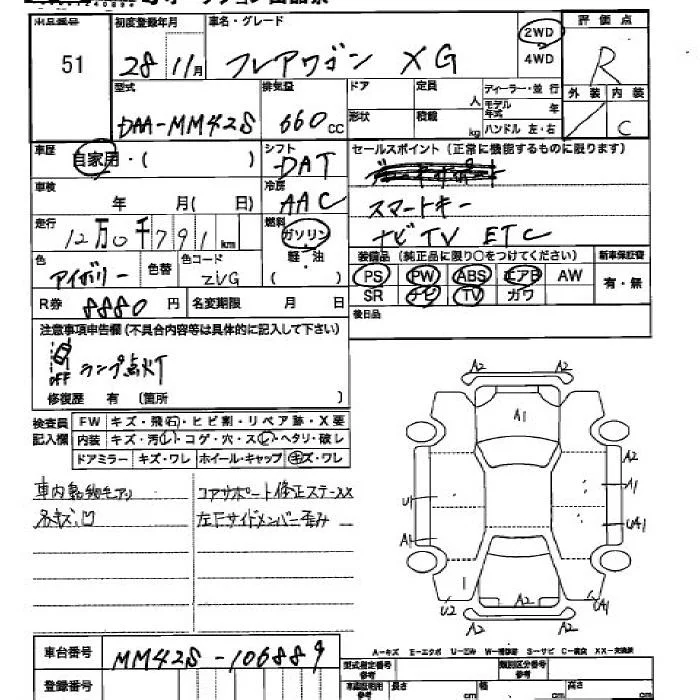 出品番号 初度登録年月 車名・グレード 2WD 評価点
51 28 11月 フレアワゴン XG 4WD R
型式 排気量 ドア 定員 人 ディーラー・並行 外装 内装
DAA-MM42S 660cc 形状 積載 kg モデル年式 年 C
ハンドル 左・右
車歴 自家用・( ) シフト DAT セールスポイント(正常に機能するものに限ります)
車検 年 月( 日) 冷房 AAC スマートキー
走行 12万0千791km 燃料 ガソリン ナビ TV ETC
軽・油 ( )
色 アイボリー 色替 色コード ZVG 装備品(純正品に限り○をつけてください) 新車保証書
PS PW ABS エアB AW 有・無
R券 8880円 名変期限 月 日 SR ナビ TV ガワ
後日品
注意事項申告欄(不具合内容等は具体的に記入して下さい)
OFF ランプ点灯
修復歴 有 〔箇所 〕
検査員記入欄 FW キズ・飛石・ヒビ割・リペア跡・X要
内装 キズ・汚レ・コゲ・穴・スレ・ヘタリ・破レ
ドアミラー キズ・ワレ ホイール・キャップ キズ・ワレ
コアサポート修正ステーXX
左Fサイドメンバー歪み
A2 A2
A1
A2
U1 A1
A1 UA1
U2 A2 A2 UA1
車台番号 MM42S-106889
登録番号
A-キズ E-エクボ U-凹W W-補修跡 S-サビ C-腐食 XX-交換済
型式指定番号 類別区分番号
長さ cm 幅 cm 高さ cm